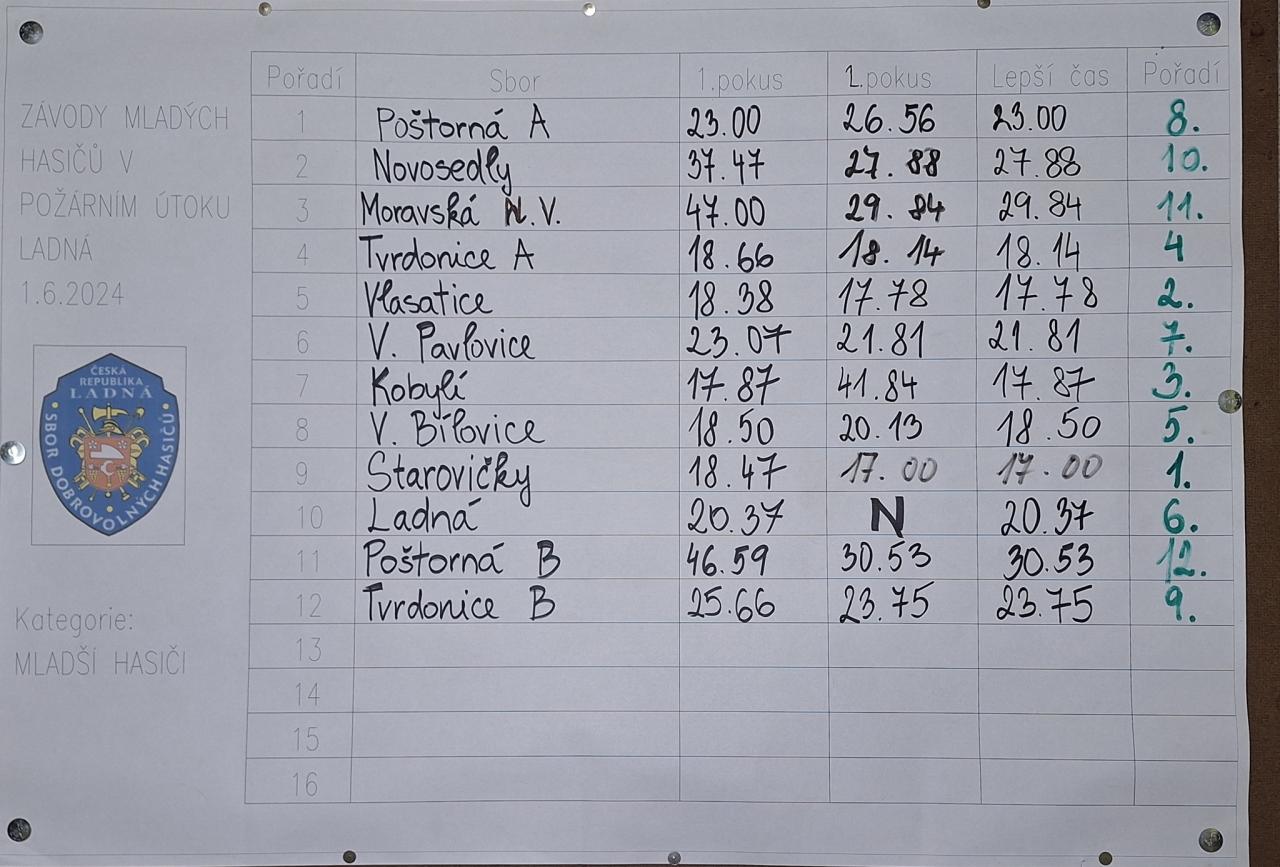 ZÁVODY MLADÝCH
HASIČŮ V
POŽÁRNÍM ÚTOKU
LADNÁ
1.6.2024
ČESKÁ
REPUBLIKA
LADNÁ
SBOR DOBROVOLNÝCH HASIČŮ
Kategorie:
MLADŠÍ HASIČI
Pořadí Sbor 1.pokus 1.pokus Lepší čas Pořadí
1 Poštorná A 23.00 26.56 23.00 8.
2 Novosedly 37.47 27.88 27.88 10.
3 Moravská N.V. 47.00 29.84 29.84 11.
4 Tvrdonice A 18.66 18.14 18.14 4
5 Vlasatice 18.38 17.78 17.78 2.
6 V. Pavlovice 23.07 21.81 21.81 7.
7 Kobylí 17.87 41.84 17.87 3.
8 V. Bílovice 18.50 20.13 18.50 5.
9 Starovičky 18.47 17.00 17.00 1.
10 Ladná 20.37 N 20.37 6.
11 Poštorná B 46.59 30.53 30.53 12.
12 Tvrdonice B 25.66 23.75 23.75 9.
13
14
15
16